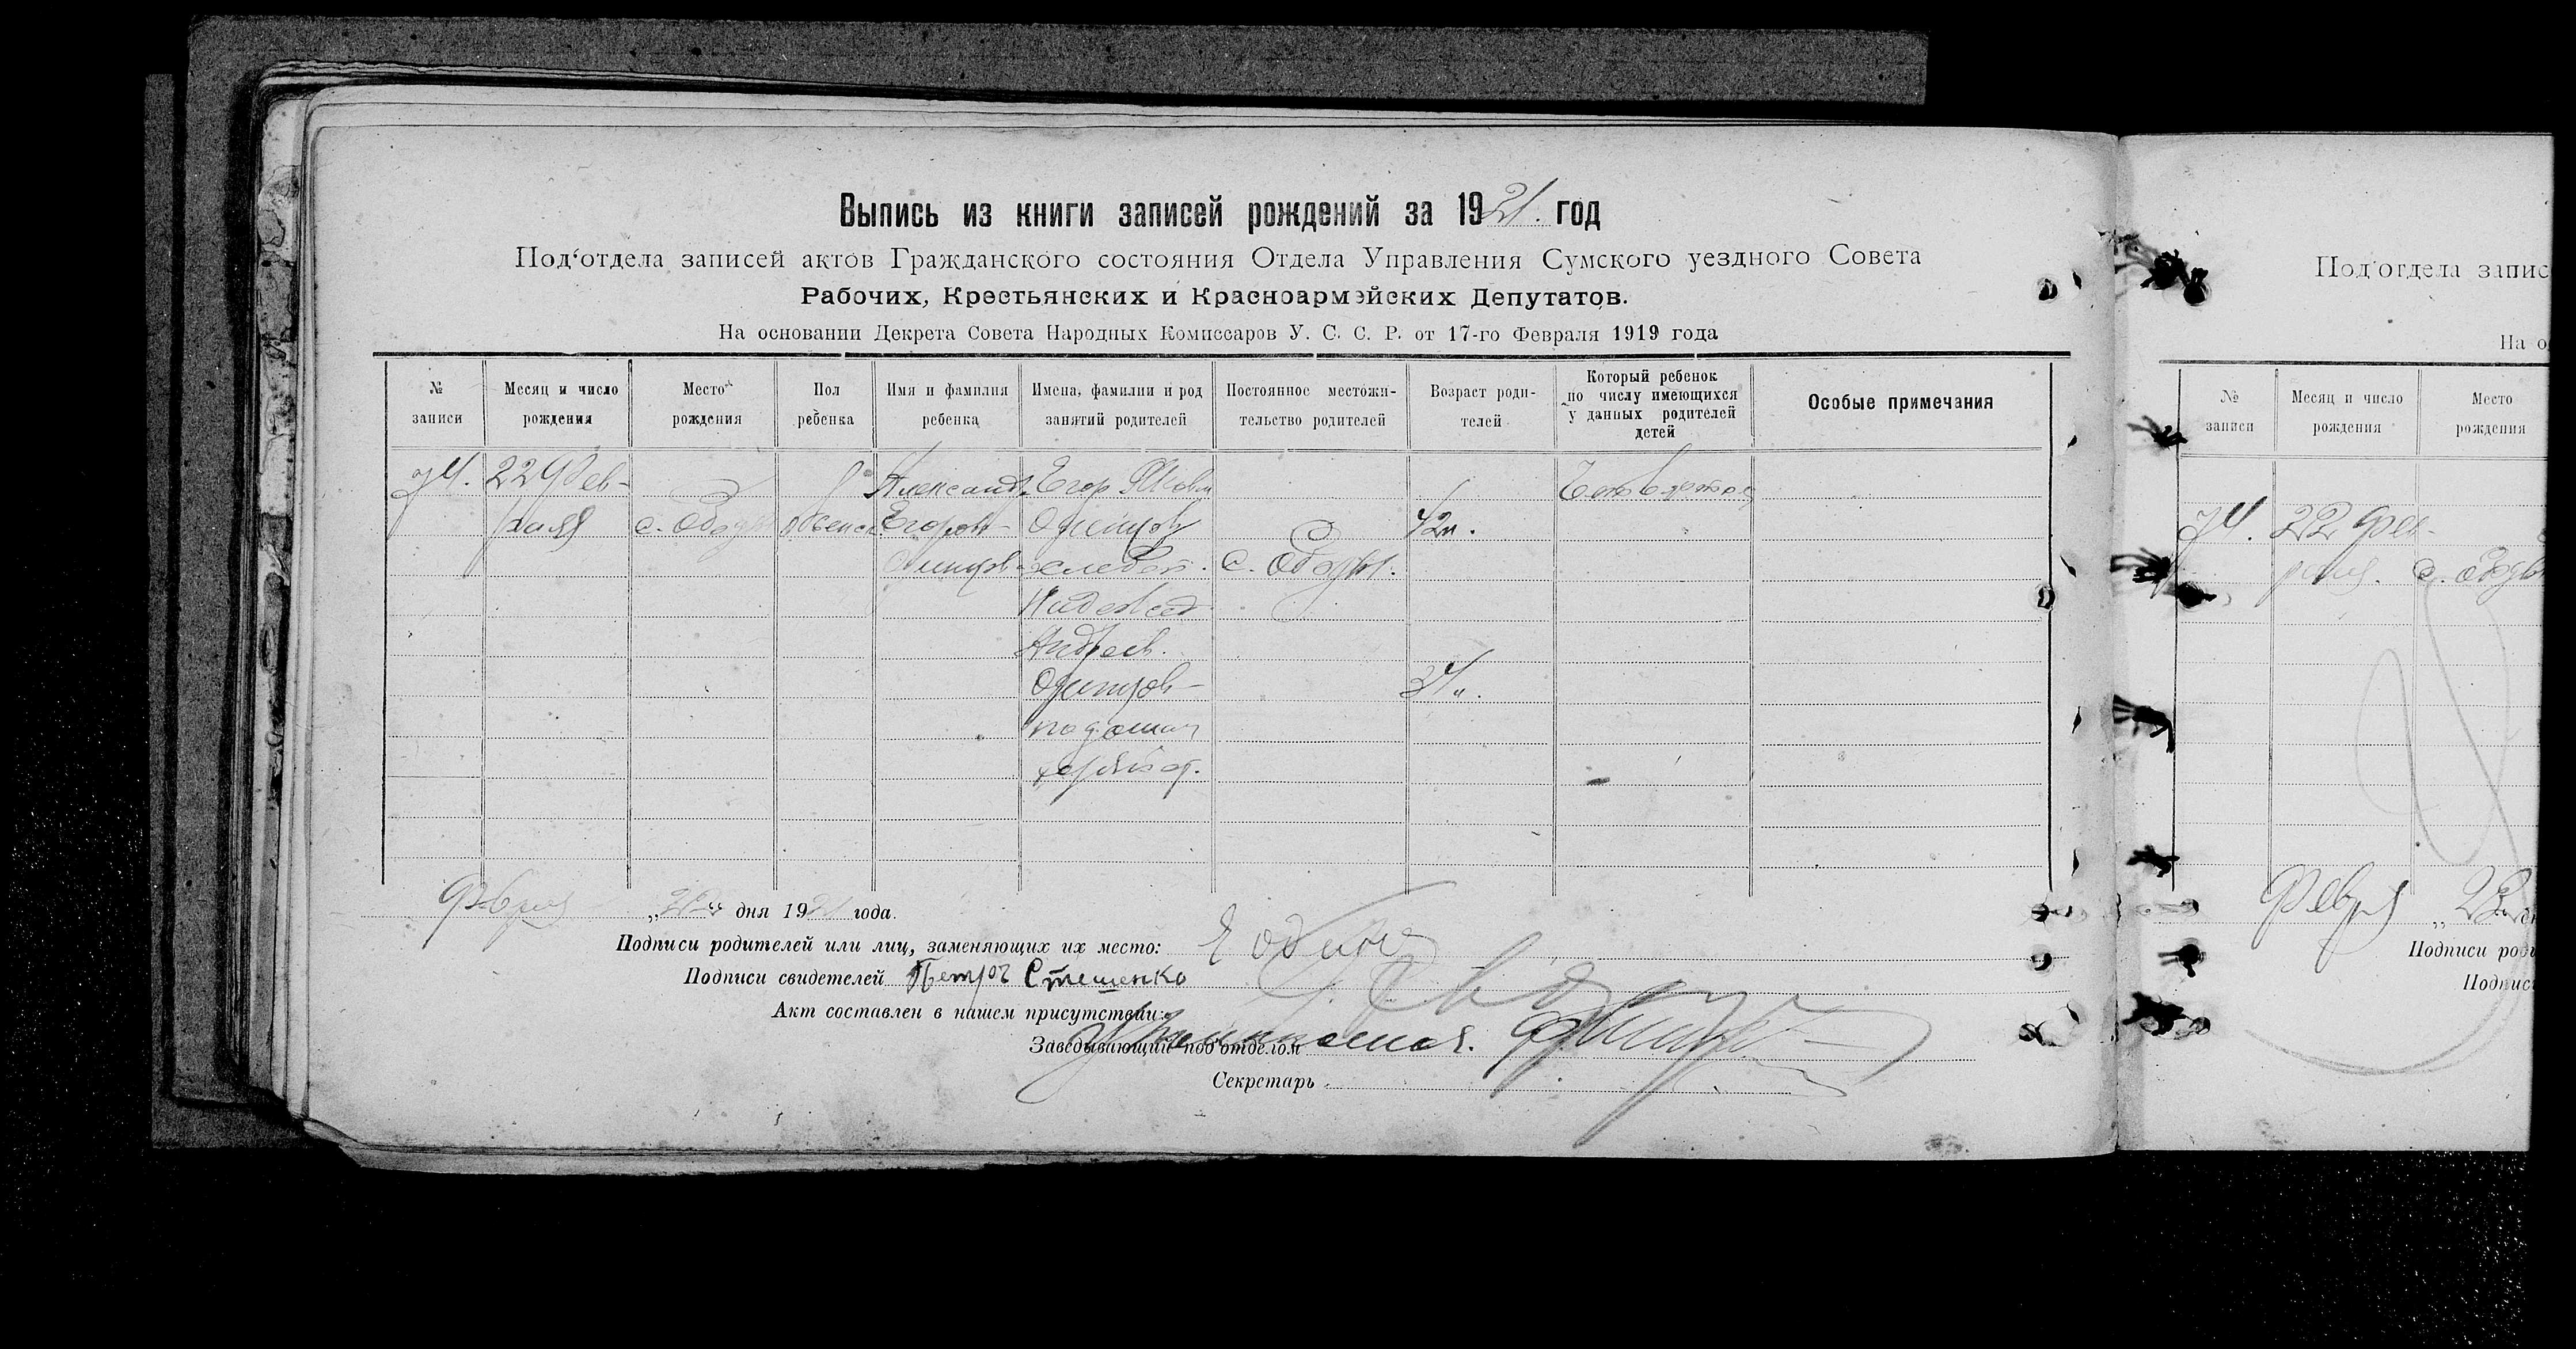 Выпись из книги записей рождений за 1921. год
Под‘отдела записей актов Гражданского состояния Отдела Управления Сумского уездного Совета
Рабочих, Крестьянских и Красноармейских Депутатов.
На основании Декрета Совета Народных Комиссаров У. С. С. Р. от 17-го Февраля 1919 года
№ записи
Месяц и число рождения
Место рождения
Пол ребенка
Имя и фамилия ребенка
Имена, фамилии и род занятий родителей
Постоянное местожительство родителей
Возраст родителей
Который ребенок по числу имеющихся у данных родителей детей
Особые примечания
74.
22 Фев-
раля
с. Ободы
Александ.
Егоров-
Егор
Одинцов
хлебоп.
Надежда
Андреев.
Одинцов-
с. Ободы.
42
34
Феврал
дня 1921 года.
Подписи родителей или лиц, заменяющих их место:
Подписи свидетелей Петро Стешенко
Акт составлен в нашем присутствии:
Заведывающий под‘отделом
Секретарь
Под‘отдела запис
На о
№ записи
Месяц и число рождения
Место рождения
74. 22 Фев-
раля. с. Ободы
Феврл „23
Подписи род
Подпис